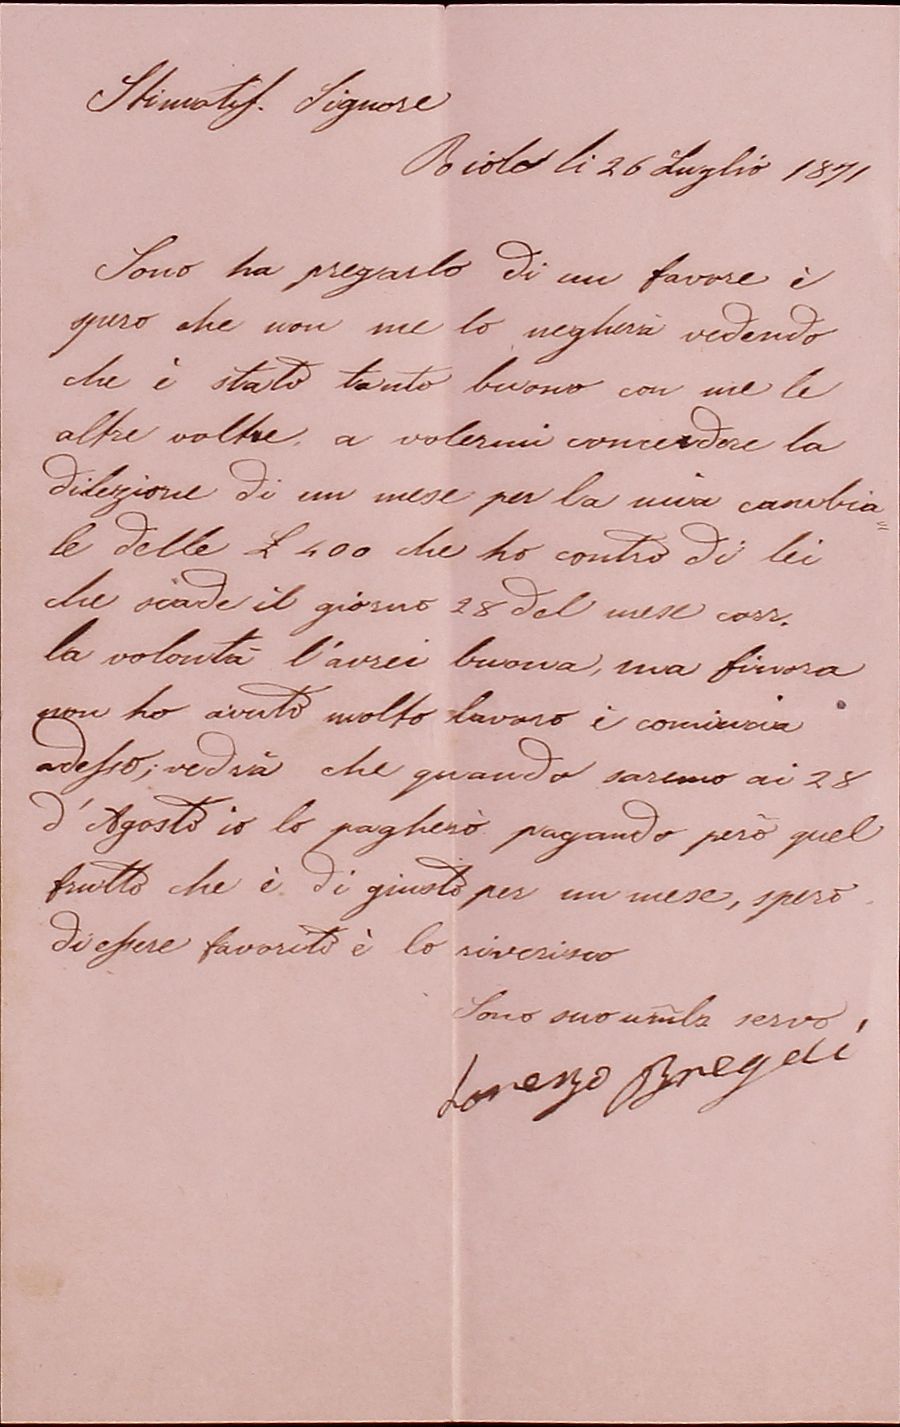 Stimatiss. Signore
Riolo li 26 Luglio 1871
Sono ha pregarlo di un favore è
spero che non me lo negherà vedendo
che è stato tanto buono con me le
altre voltre, a volermi concerdere la
dilezione di un mese per la mia cambia
le delle £ 400 che ho contro di lei
che sciade il giorno 28 del mese corr.
la volontà l'avrei buona, ma finora
non ho avuto molto lavoro è comincia
adesso; vedrà che quando saremo ai 28
d'Agosto io lo pagherò pagando però quel
frutto che è di giusto per un mese, spero
di essere favorito è lo riverisco
Sono suo servo
Lorenzo